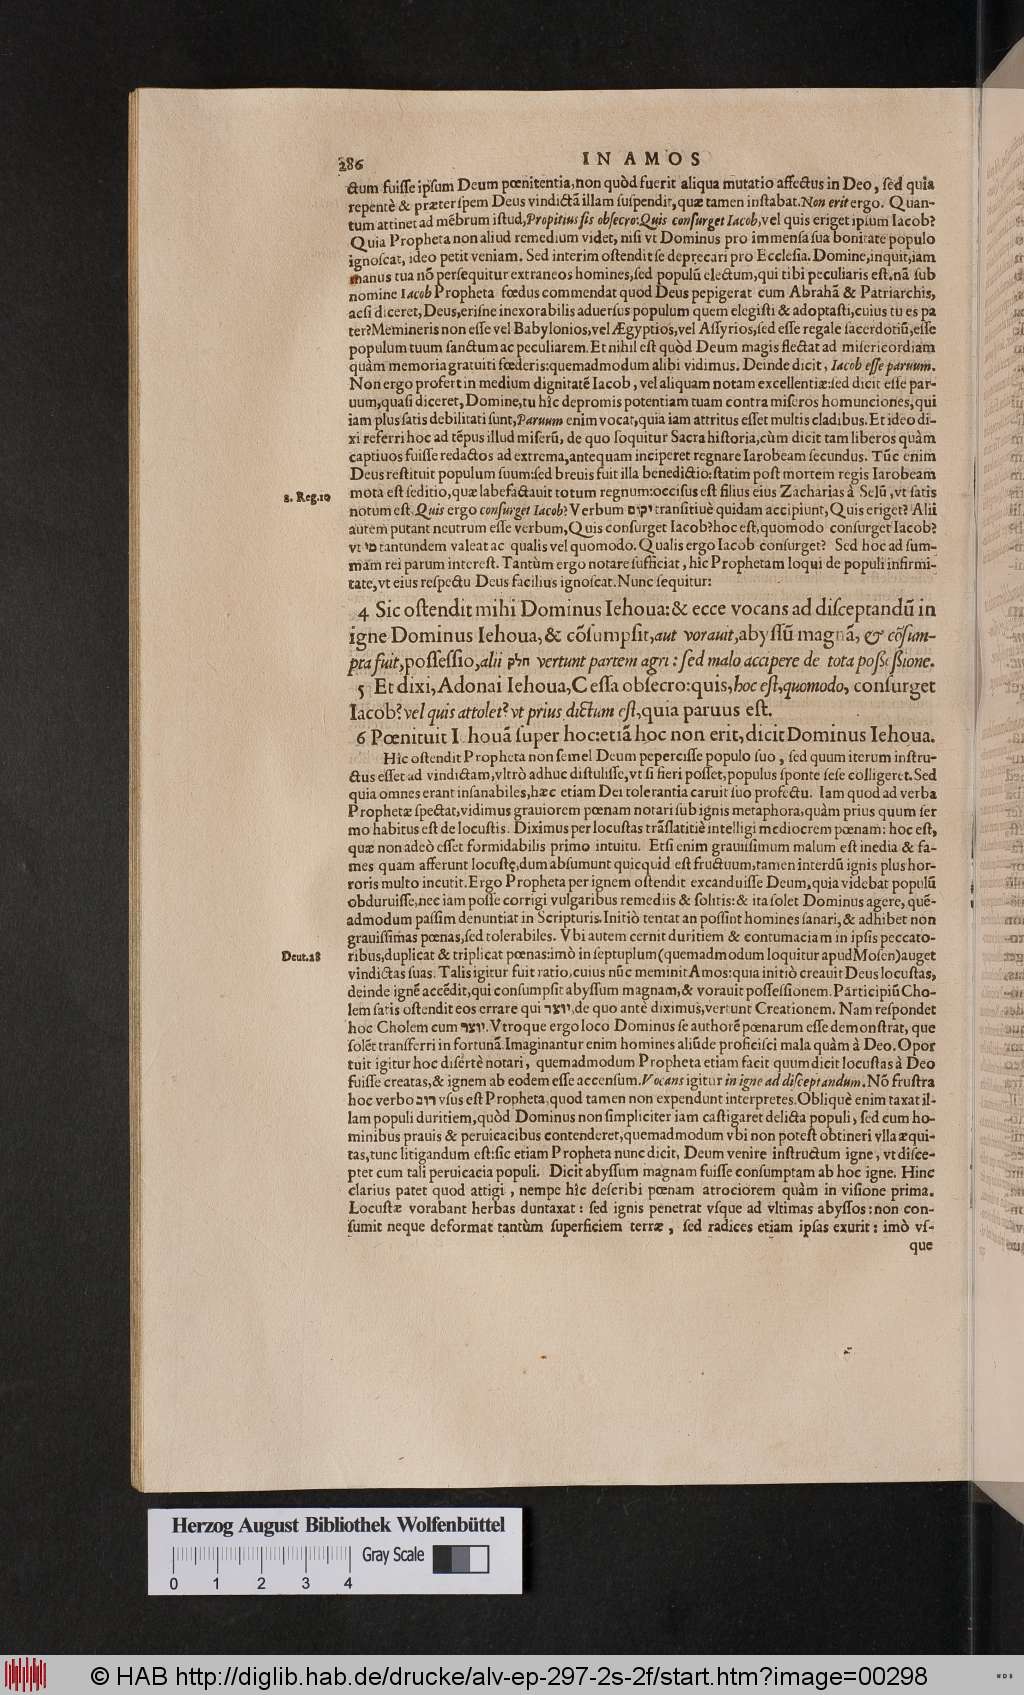 286 IN AMOS
ctum fuiſſe ipſum Deum pœnitentia, non quòd fuerit aliqua mutatio affectus in Deo, ſed quia
repentè & præter ſpem Deus vindictã illam ſuſpendit, quæ tamen inſtabat. Non erit ergo. Quan-
tum attinet ad mẽbrum iſtud, Propitius ſis obſecro: Quis conſurget Iacob, vel quis eriget ipſum Iacob?
Quia Propheta non aliud remedium videt, niſi vt Dominus pro immenſa ſua bonitate populo
ignoſcat, ideo petit veniam. Sed interim oſtendit ſe deprecari pro Eccleſia. Domine, inquit, iam
manus tua nõ perſequitur extraneos homines, ſed populũ electum, qui tibi peculiaris eſt. nã ſub
nomine Iacob Propheta fœdus commendat quod Deus pepigerat cum Abrahã & Patriarchis,
acſi diceret, Deus, eriſne inexorabilis aduerſus populum quem elegiſti & adoptaſti, cuius tu es pa
ter? Memineris non eſſe vel Babylonios, vel Ægyptios, vel Aſſyrios, ſed eſſe regale ſacerdotiũ, eſſe
populum tuum ſanctum ac peculiarem. Et nihil eſt quòd Deum magis flectat ad miſericordiam
quàm memoria gratuiti fœderis: quemadmodum alibi vidimus. Deinde dicit, Iacob eſſe paruum.
Non ergo profert in medium dignitatẽ Iacob, vel aliquam notam excellentiæ: ſed dicit eſſe par-
uum, quaſi diceret, Domine, tu hîc depromis potentiam tuam contra miſeros homunciones, qui
iam plus ſatis debilitati ſunt, Paruum enim vocat, quia iam attritus eſſet multis cladibus. Et ideo di-
xi referri hoc ad tẽpus illud miſerũ, de quo loquitur Sacra hiſtoria, cùm dicit tam liberos quàm
captiuos fuiſſe redactos ad extrema, antequam inciperet regnare Iarobeam ſecundus. Tũc enim
Deus reſtituit populum ſuum: ſed breuis fuit illa benedictio: ſtatim poſt mortem regis Iarobeam
8. Reg. 10 mota eſt ſeditio, quæ labefactauit totum regnum: occiſus eſt filius eius Zacharias à Selũ, vt ſatis
notum eſt. Quis ergo conſurget Iacob? Verbum יקום tranſitiuè quidam accipiunt, Quis eriget? Alii
autem putant neutrum eſſe verbum, Quis conſurget Iacob? hoc eſt, quomodo conſurget Iacob?
vt מי tantundem valeat ac qualis vel quomodo. Qualis ergo Iacob conſurget? Sed hoc ad ſum-
mam rei parum intereſt. Tantùm ergo notare ſufficiat, hîc Prophetam loqui de populi infirmi-
tate, vt eius reſpectu Deus facilius ignoſcat. Nunc ſequitur:
4 Sic oſtendit mihi Dominus Iehoua: & ecce vocans ad diſceptandũ in
igne Dominus Iehoua, & cõſumpſit, aut vorauit, abyſſũ magnã, & cõſum-
pta fuit, poſſeſſio, alii חלק vertunt partem agri: ſed malo accipere de tota poſſeſſione.
5 Et dixi, Adonai Iehoua, Ceſſa obſecro: quis, hoc eſt, quomodo, conſurget
Iacob? vel quis attolet? vt prius dictum eſt, quia paruus eſt.
6 Pœnituit I houã ſuper hoc: etiã hoc non erit, dicit Dominus Iehoua.
Hîc oſtendit Propheta non ſemel Deum peperciſſe populo ſuo, ſed quum iterum inſtru-
ctus eſſet ad vindictam, vltrò adhuc diſtuliſſe, vt ſi fieri poſſet, populus ſponte ſeſe colligeret. Sed
quia omnes erant inſanabiles, hæc etiam Dei tolerantia caruit ſuo profectu. Iam quod ad verba
Prophetæ ſpectat, vidimus grauiorem pœnam notari ſub ignis metaphora, quàm prius quum ſer
mo habitus eſt de locuſtis. Diximus per locuſtas trãſlatitiè intelligi mediocrem pœnam: hoc eſt,
quæ non adeò eſſet formidabilis primo intuitu. Etſi enim grauiſſimum malum eſt inedia & fa-
mes quam afferunt locuſtę, dum abſumunt quicquid eſt fructuum, tamen interdũ ignis plus hor-
roris multo incutit. Ergo Propheta per ignem oſtendit excanduiſſe Deum, quia videbat populũ
obduruiſſe, nec iam poſſe corrigi vulgaribus remediis & ſolitis: & ita ſolet Dominus agere, quẽ-
admodum paſſim denuntiat in Scripturis. Initiò tentat an poſſint homines ſanari, & adhibet non
grauiſſimas pœnas, ſed tolerabiles. Vbi autem cernit duritiem & contumaciam in ipſis peccato-
Deut. 28 ribus, duplicat & triplicat pœnas: imò in ſeptuplum (quemadmodum loquitur apud Moſen) auget
vindictas ſuas. Talis igitur fuit ratio, cuius nũc meminit Amos: quia initiò creauit Deus locuſtas,
deinde ignẽ accẽdit, qui conſumpſit abyſſum magnam, & vorauit poſſeſſionem. Participiũ Cho-
lem ſatis oſtendit eos errare qui יוצר, de quo antè diximus, vertunt Creationem. Nam reſpondet
hoc Cholem cum יוצר. Vtroque ergo loco Dominus ſe authorẽ pœnarum eſſe demonſtrat, que
ſolẽt transferri in fortunã. Imaginantur enim homines aliũde proficiſci mala quàm à Deo. Opor
tuit igitur hoc diſertè notari, quemadmodum Propheta etiam facit quum dicit locuſtas à Deo
fuiſſe creatas, & ignem ab eodem eſſe accenſum. Vocans igitur in igne ad diſceptandum. Nõ fruſtra
hoc verbo רוב vſus eſt Propheta, quod tamen non expendunt interpretes. Obliquè enim taxat il-
lam populi duritiem, quòd Dominus non ſimpliciter iam caſtigaret delicta populi, ſed cum ho-
minibus prauis & peruicacibus contenderet, quemadmodum vbi non poteſt obtineri vlla æqui-
tas, tunc litigandum eſt: ſic etiam Propheta nunc dicit, Deum venire inſtructum igne, vt diſce-
ptet cum tali peruicacia populi. Dicit abyſſum magnam fuiſſe conſumptam ab hoc igne. Hinc
clarius patet quod attigi, nempe hîc deſcribi pœnam atrociorem quàm in viſione prima.
Locuſtæ vorabant herbas duntaxat: ſed ignis penetrat vſque ad vltimas abyſſos: non con-
ſumit neque deformat tantùm ſuperficiem terræ, ſed radices etiam ipſas exurit: imò vſ-
que
Herzog August Bibliothek Wolfenbüttel
Gray Scale
0 1 2 3 4
© HAB http://diglib.hab.de/drucke/alv-ep-297-2s-2f/start.htm?image=00298
WDB